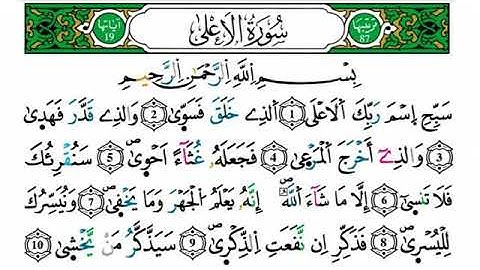 ترتيبها 87 سُورَةُ الْأَعْلَى آياتها 19
بِسْمِ اللَّهِ الرَّحْمَٰنِ الرَّحِيمِ
سَبِّحِ اِسْمَ رَبِّكَ اَلْأَعْلَى 1 اَلَّذِي خَلَقَ فَسَوَّىٰ 2 وَالَّذِي قَدَّرَ فَهَدَىٰ
3 وَالَّذِي أَخْرَجَ اَلْمَرْعَىٰ 4 فَجَعَلَهُ غُثَاءً اَحْوَىٰ 5 سَنُقْرِئُكَ
فَلَا تَنسَىٰ 6 إِلَّا مَا شَاءَ اَللَّهُ إِنَّهُ يَعْلَمُ اُلْجَهْرَ وَمَا يَخْفَىٰ 7 وَنُيَسِّرُكَ
لِلْيُسْرَىٰ 8 فَذَكِّرِ اِن نَّفَعَتِ اِلذِّكْرَىٰ 9 سَيَذَّكَّرُ مَنْ يَّخْشَىٰ 10